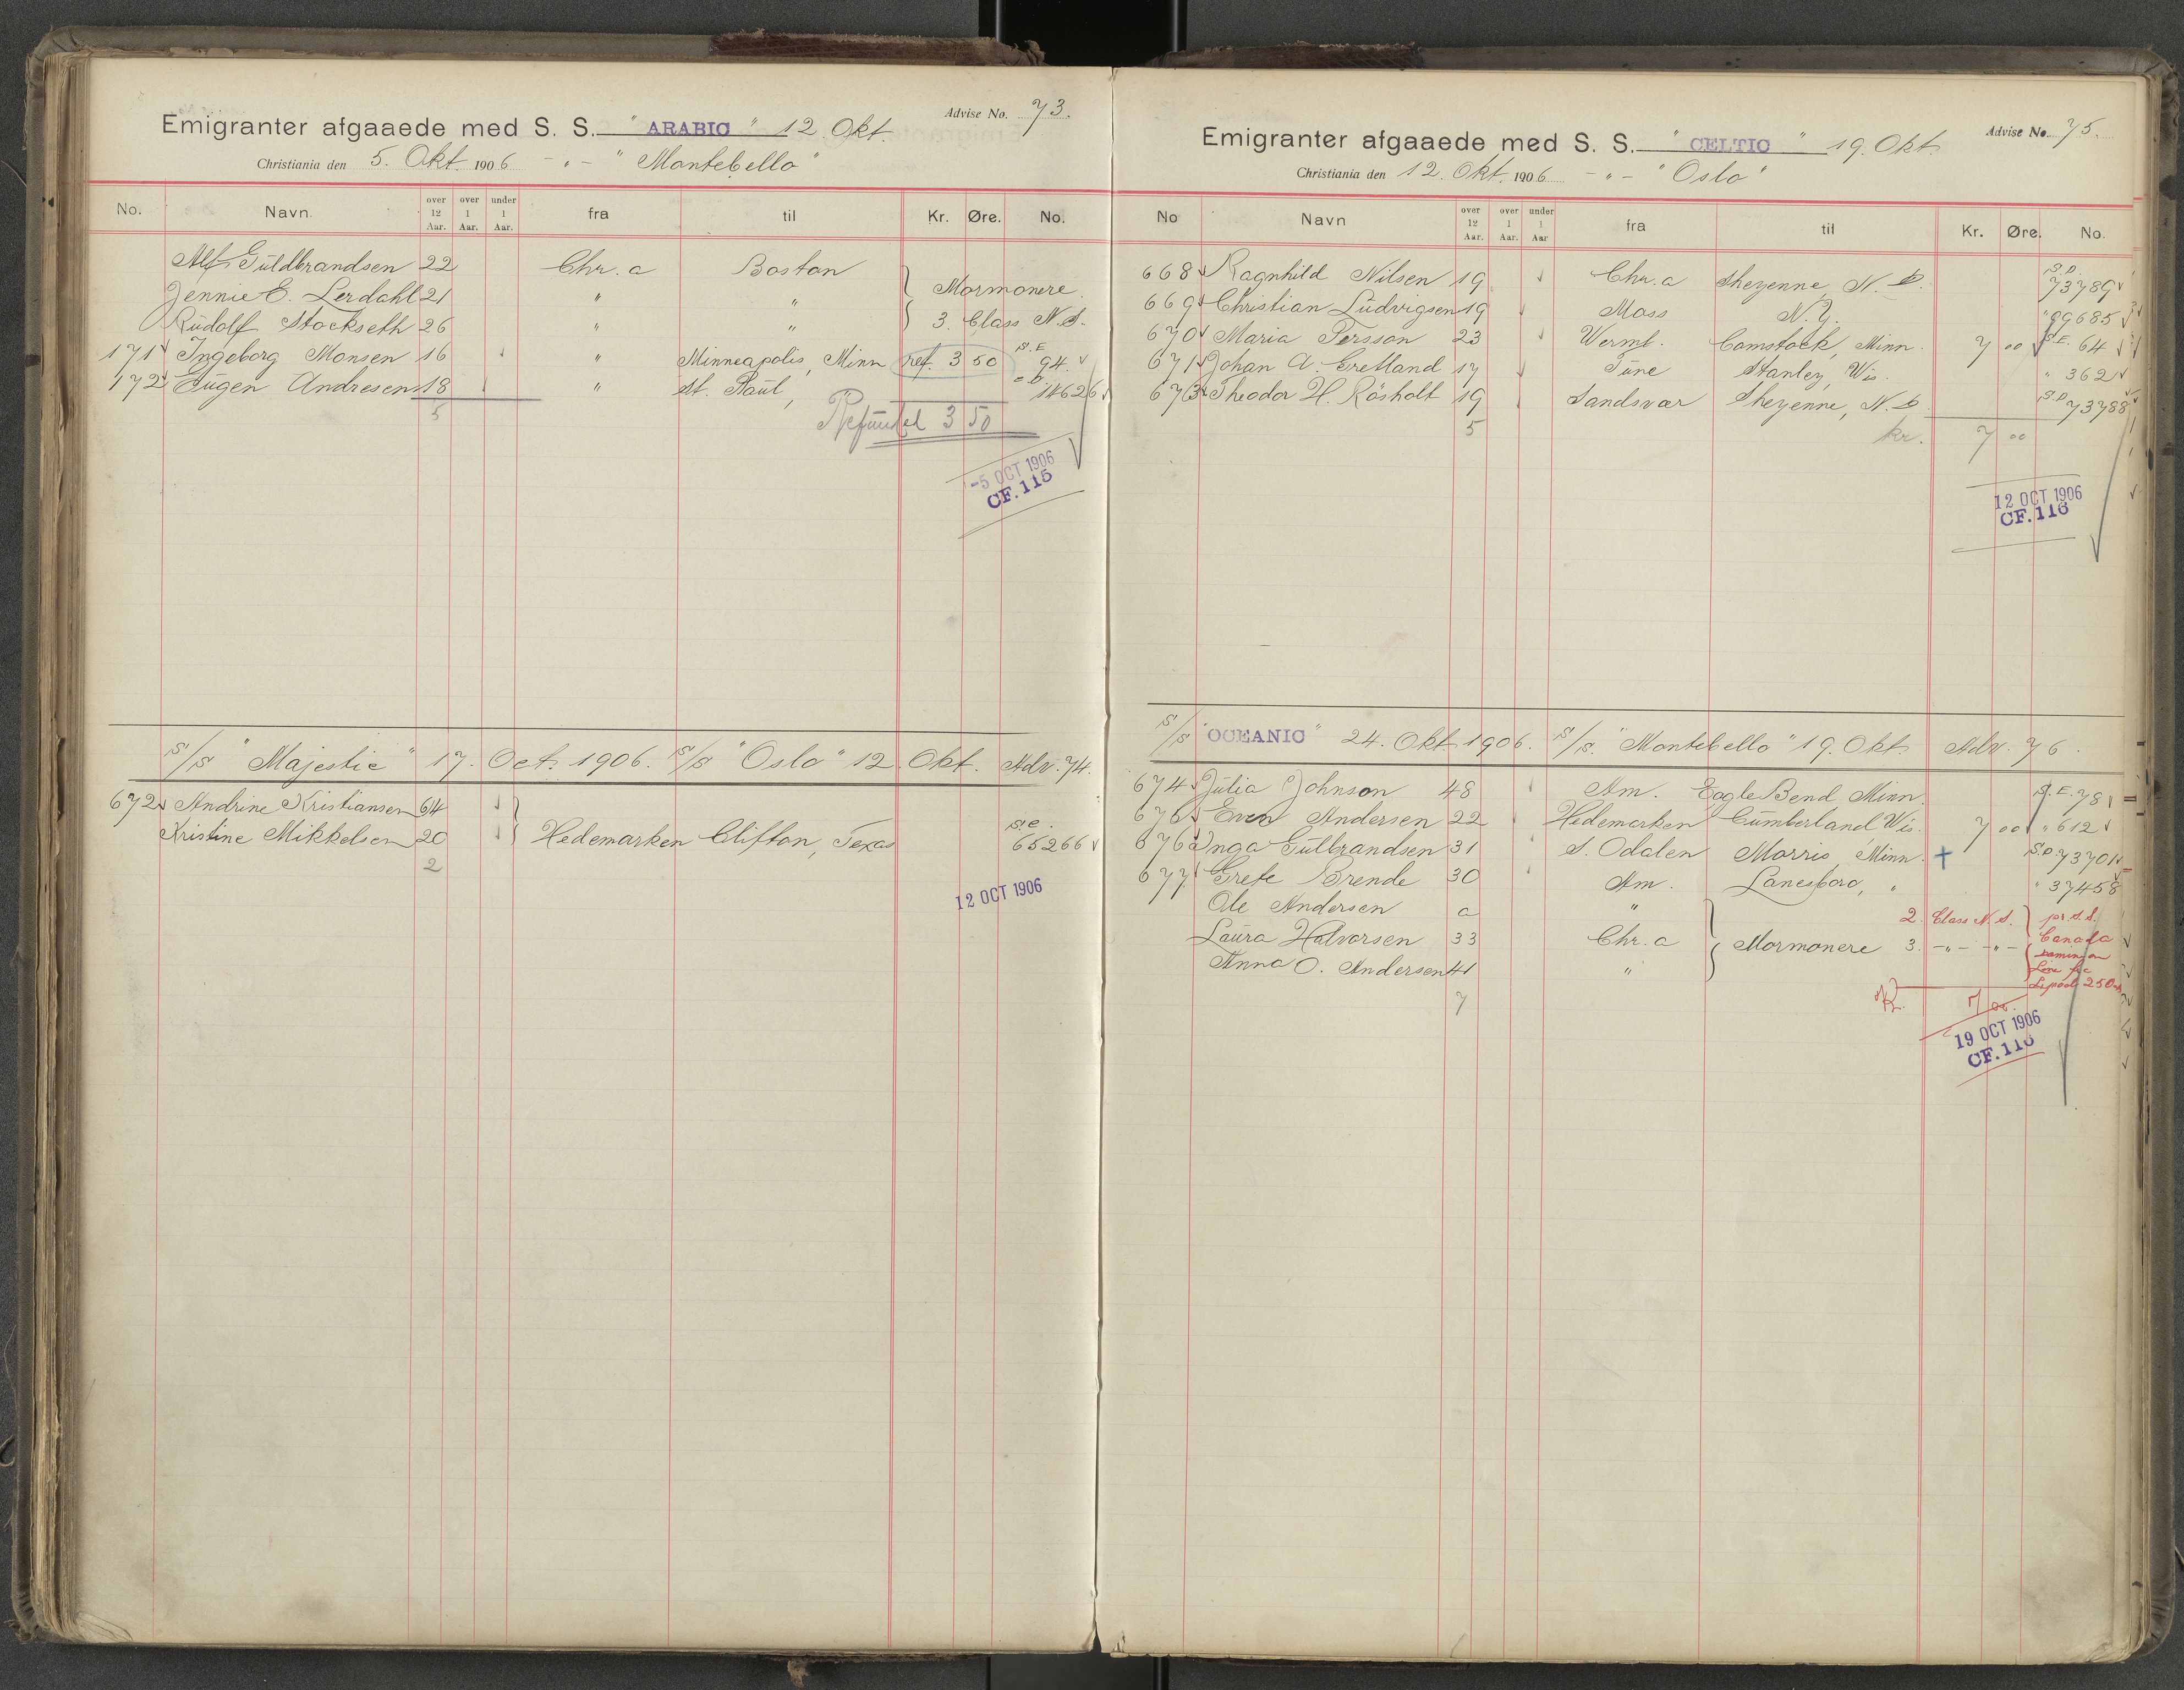 Advise No. 73.
Emigranter afgaaede med S. S. " ARABIC " 12. Okt.
Christiania den 5. Okt. 1906 - " - " Montebello "
No. Navn. over 12 Aar. over 1 Aar. under 1 Aar. fra til Kr. Øre. No.
Alf Guldbrandsen 22 Chr.a Boston
Jennie E. Lerdahl 21 " " } Mormonere
Rudolf Stockseth 26 " " 3. Class N.S.
171 Ingeborg Monsen 16 " Minneapolis, Minn ref. 3 50 S.E. 94.
172 Eugen Andresen 18 " St. Paul, " D. 14626
5 Refunded 3 50
-5 OCT 1906
CF. 115
S/S " Majestic " 17. Oct. 1906. S/S " Oslo " 12. Okt. Adv. 74.
672 Andrine Kristiansen 64
Kristine Mikkelsen 20 } Hedemarken Clifton, Texas S.C. 65266
2
12 OCT 1906
Advise No. 75.
Emigranter afgaaede med S. S. " CELTIC " 19. Okt.
Christiania den 12. Okt. 1906 - " - " Oslo "
No Navn over 12 Aar. over 1 Aar. under 1 Aar fra til Kr. Øre. No.
668 Ragnhild Nilsen 19 Chr.a Sheyenne, N. D. S.D. 73789
669 Christian Ludvigsen 19 Moss N.Y. " 89685
670 Maria Persson 23 Werml. Comstock, Minn. 7 00 S.E. 64
671 Johan A. Gretland 17 Tune Stanley, Wis. " 362
673 Theodor H. Rösholt 19 Sandsvær Sheyenne, N. D. S.D. 73788
5 kr. 7 00
12 OCT 1906
CF. 116
S/S " OCEANIC " 24. Okt 1906. S/S. " Montebello " 19. Okt. Adv. 76.
674 Julia Johnson 48 Am. Eagle Bend, Minn. S.E. 781
676 Even Andersen 22 Hedemarken Cumberland Wis. 7 00 " 612
676 Inga Gulbrandsen 31 S. Odalen Morris, Minn. S.D. 73701
677 Grete Brende 30 Am. Lanesboro, " " 37458
Ole Andersen a " 2. Class N.S. } pr. S.S.
Laura Halvorsen 33 Chr.a } Mormonere 3. - " - - " - Canada
Anna O. Andersen 41 " Dominion
Line fra
L'pool 25 Okt
7 Kr. 7 00.
19 OCT 1906
CF. 116